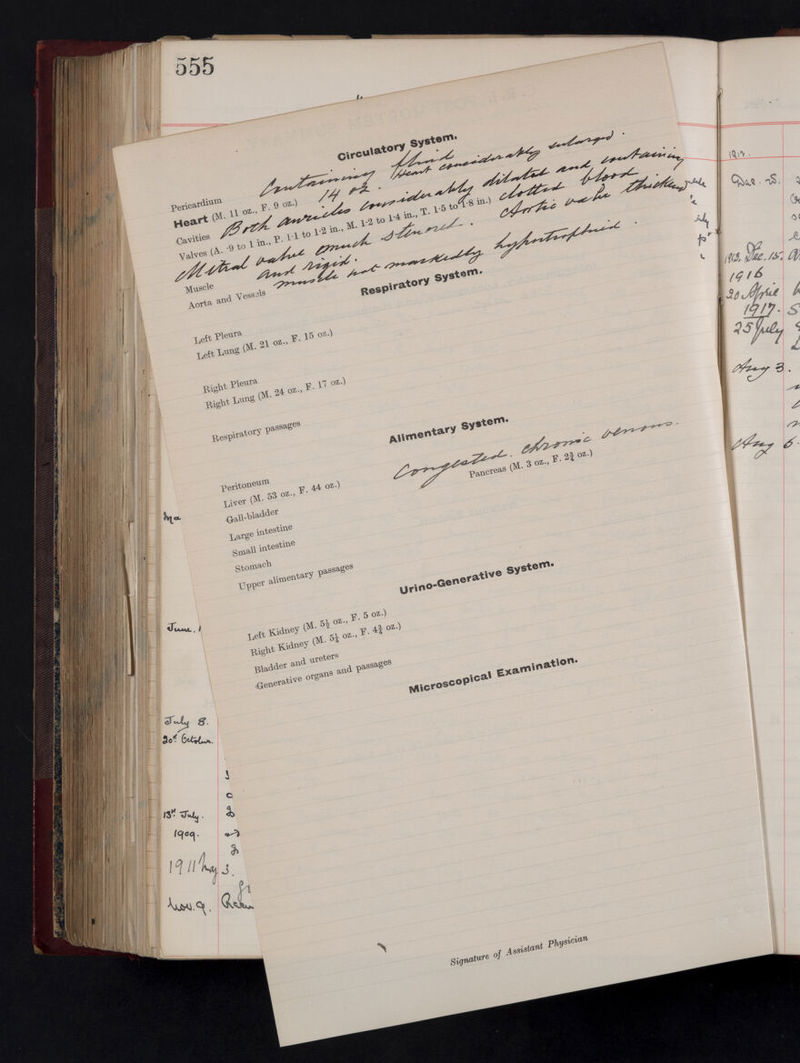 555
Circulatory System.
Pericardium Containing fluid
Heart (M. 11 oz., F. 9 oz.) 14 oz. Heart considerably enlarged.
Cavities Both auricles considerably dilated and containing
Valves (A. ·9 to 1 in., P. 1·1 to 1·2 in., M. 1·2 to 1·4 in., T. 1·5 to 1·8 in.) clotted blood
Mitral valve much stenosed. Aortic valve thickened
Muscle and rigid.
Aorta and Vessels muscle not markedly hypertrophied.
Respiratory System.
Left Pleura
Left Lung (M. 21 oz., F. 15 oz.)
Right Pleura
Right Lung (M. 24 oz., F. 17 oz.)
Respiratory passages
Alimentary System.
Peritoneum
Liver (M. 53 oz., F. 44 oz.) Congested. chronic venous.
Gall-bladder Pancreas (M. 3 oz., F. 2¾ oz.)
Large intestine
Small intestine
Stomach
Upper alimentary passages
Urino-Generative System.
Left Kidney (M. 5½ oz., F. 5 oz.)
Right Kidney (M. 5¼ oz., F. 4¾ oz.)
Bladder and ureters
Generative organs and passages
Microscopical Examination.
Signature of Assistant Physician
June. 1
July 8.
20th October.
13th July.
1909.
1911 May 3.
Nov. 9.
1912. Dec. 15.
1916
20 April
1917.
25 July
Aug 3.
Aug 6.